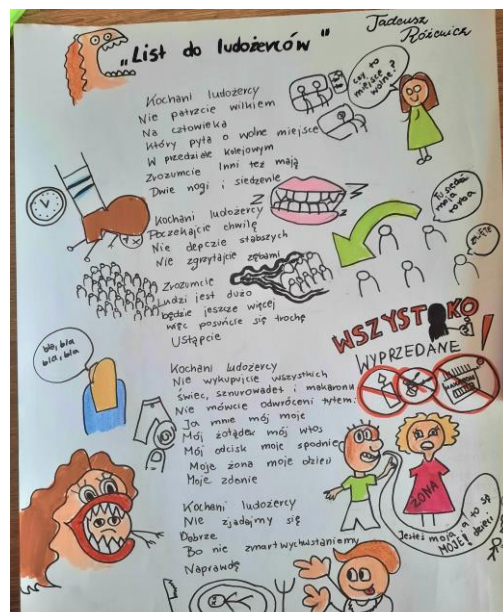 „List do ludożerców"
Tadeusz
Różewicz
Kochani ludożercy
Nie patrzcie wilkiem
Na człowieka
Który pyta o wolne miejsce
W przedziale kolejowym
Zrozumcie Inni też mają
Dwie nogi i siedzenie
czy to
miejsce
wolne?
Kochani ludożercy
Poczekajcie chwilę
Nie depczcie słabszych
Nie zgrzytajcie zębami
Z
Z
Tu siedzi
moja
torba
zajęte
Zrozumcie
Ludzi jest dużo
będzie jeszcze więcej
więc posuńcie się trochę
Ustąpcie
WSZYSTKO
WYPRZEDANE!
MAKARON
bla, bla
bla, bla
Kochani ludożercy
Nie wykupujcie wszystkich
świec, sznurowadeł i makaronu
Nie mówcie odwróceni tyłem:
Ja mnie mój moje
Mój żołądek mój włos
Mój odcisk moje spodnie
Moja żona moje dzieci
Moje zdanie
ŻONA
Jesteś moja, a to są
MOJE dzieci
Kochani ludożercy
Nie zjadajmy się
Dobrze
Bo nie zmartwychwstaniemy
Naprawdę